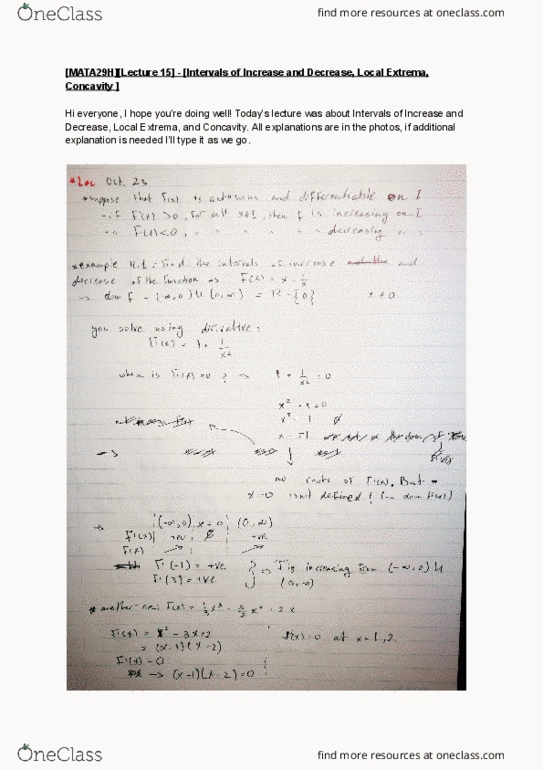 OneClass
find more resources at oneclass.com
[MATA29H][Lecture 15] - [Intervals of Increase and Decrease, Local Extrema,
Concavity ]
Hi everyone, I hope you're doing well! Today's lecture was about Intervals of Increase and
Decrease, Local Extrema, and Concavity. All explanations are in the photos, if additional
explanation is needed I'll type it as we go.
*Lec Oct. 23
*suppose that F(x) is and differentiable on I
- if F'(x) > 0, for all x∈I, then f is increasing on I
" " F'(x) < 0, " " " " " decreasing " "
*example 4.1: Find the intervals of increase and
decrease of the function => F(x) = x - 1/x
-> dom f = (-∞,0) U (0,∞) = R - {0} x ≠ 0
you solve using derivative:
F'(x) = 1 + 1/x²
when is F'(x) = 0 ? -> 1 + 1/x² = 0
x² + 1 = 0
x² = -1 ∅
no roots of F'(x). But
x = 0 isn't defined!
-> (-∞,0) x = 0 (0,∞)
F'(x) +ve ∅ +ve
F(x)
F'(-1) = +ve => F is increasing from (-∞,0) U
F'(3) = +ve (0,∞)
F(x) = 1/3 x³ - 3/2 x² + 2x
F'(x) = x² - 3x+2 f'(x)=0 at x=1,2.
= (x-1)(x-2)
F'(x) = 0
-> (x-1)(x-2)=0
OneClass
find more resources at oneclass.com